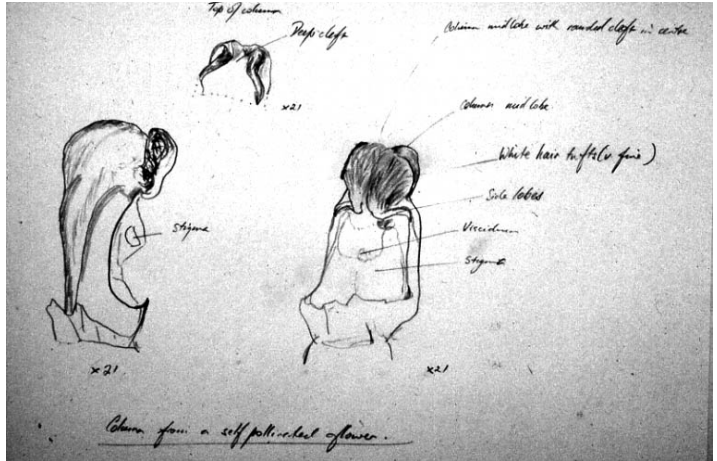 Top of column
Deep cleft
x21
Column midlobe with rounded cleft in centre
Column midlobe
White hair tufts (v. fine)
Side lobes
Stigma
Viscidium
Stigma
x21
x21
Column from a self pollinated flower.